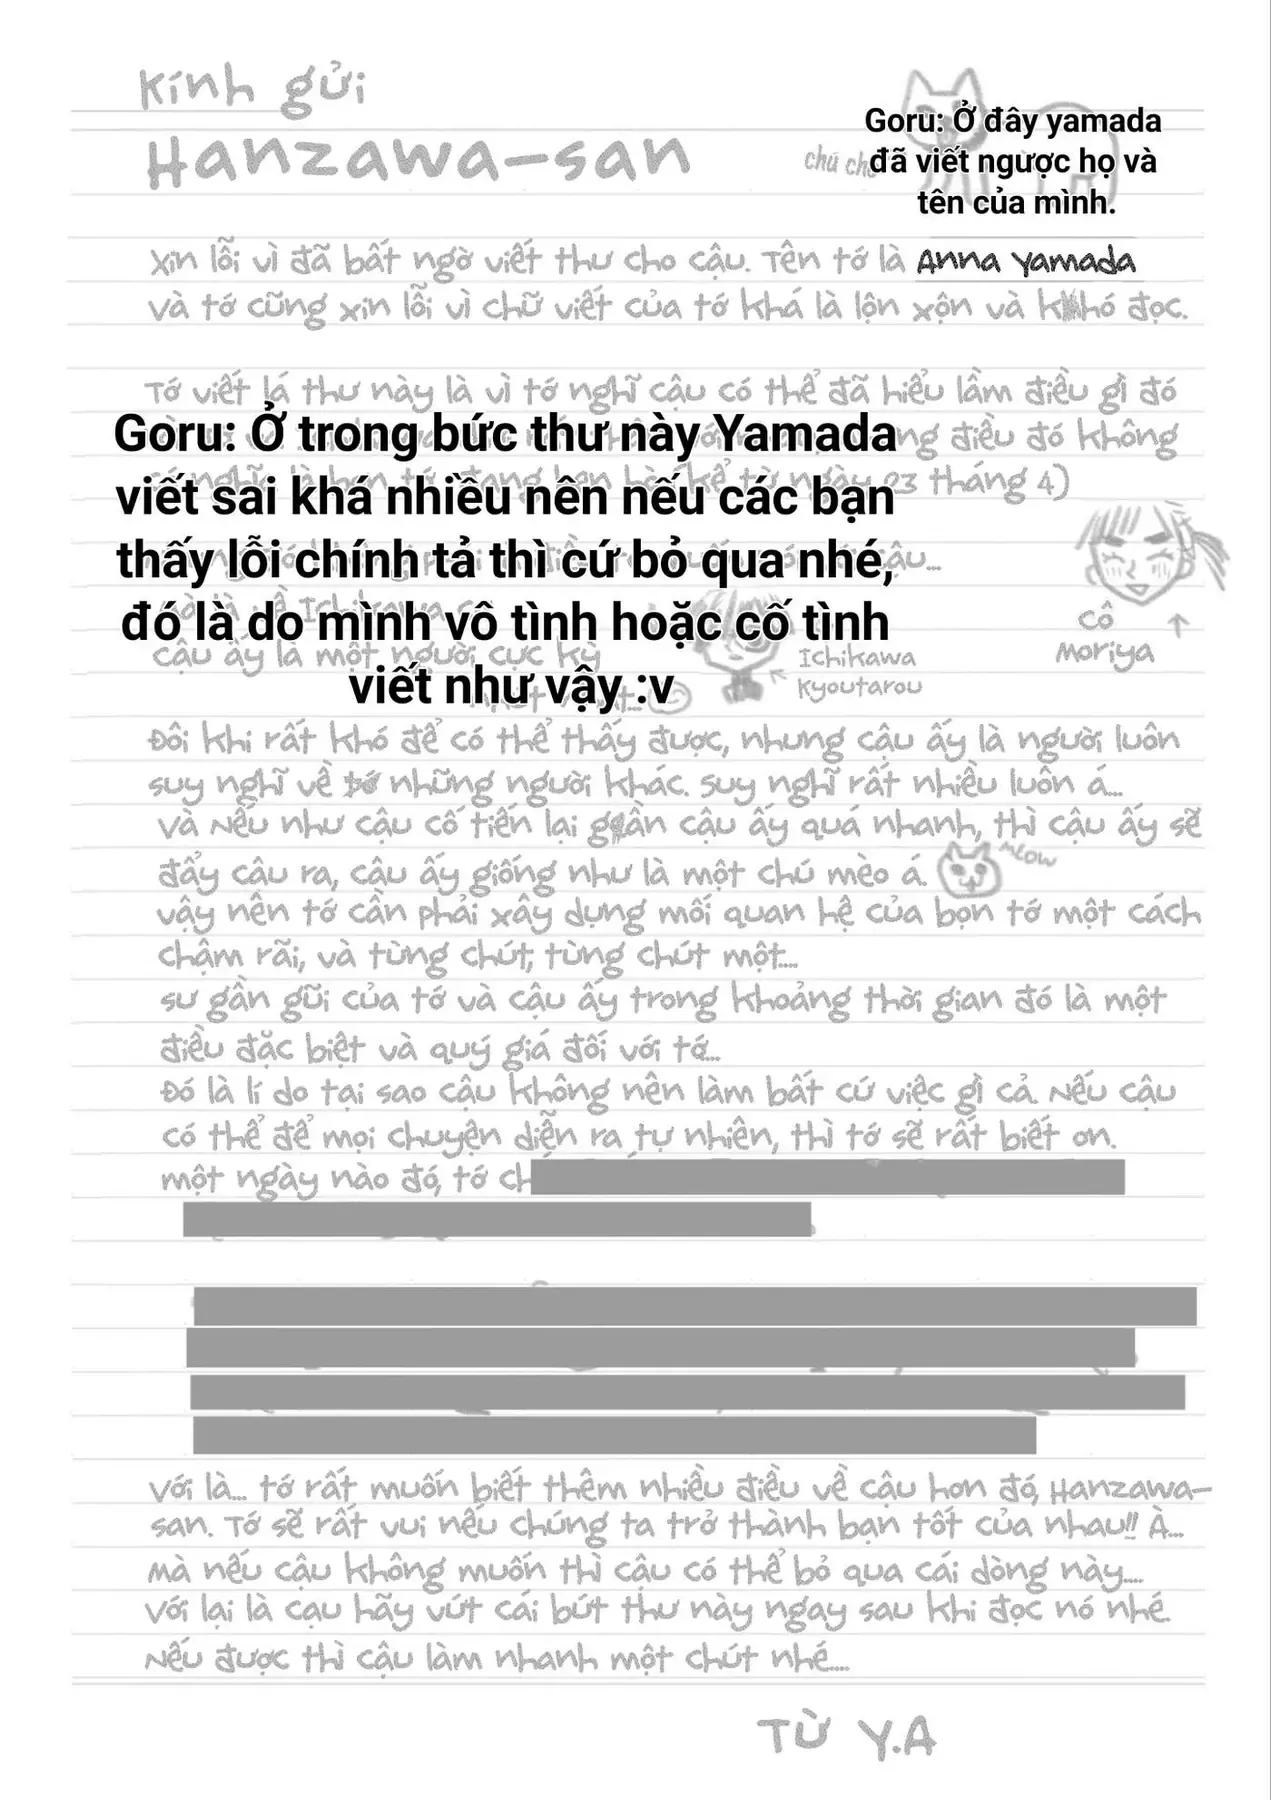 Kính gửi
Hanzawa-san
Goru: Ở đây yamada
đã viết ngược họ và
tên của mình.
chú
Xin lỗi vì đã bất ngờ viết thư cho cậu. Tên tớ là Anna Yamada
và tớ cũng xin lỗi vì chữ viết của tớ khá là lộn xộn và khó đọc.
Tớ viết lá thư này là vì tớ nghĩ cậu có thể đã hiểu lầm điều gì đó
điều đó không
23 tháng 4)
Goru: Ở trong bức thư này Yamada
viết sai khá nhiều nên nếu các bạn
thấy lỗi chính tả thì cứ bỏ qua nhé,
đó là do mình vô tình hoặc cố tình
viết như vậy :v
cậu ấy là một người cực kỳ
Ichikawa
Kyoutarou
Cô
Moriya
Đôi khi rất khó để có thể thấy được, nhưng cậu ấy là người luôn
suy nghĩ về những người khác. Suy nghĩ rất nhiều luôn á...
Và Nếu như cậu cố tiến lại gần cậu ấy quá nhanh, thì cậu ấy sẽ
đẩy câu ra, cậu ấy giống như là một chú mèo á.
meow
vậy nên tớ cần phải xây dựng mối quan hệ của bọn tớ một cách
chậm rãi, và từng chút, từng chút một...
sư gần gũi của tớ và cậu ấy trong khoảng thời gian đó là một
điều đặc biệt và quý giá đối với tớ...
Đó là lí do tại sao cậu không nên làm bất cứ việc gì cả. Nếu cậu
có thể để mọi chuyện diễn ra tự nhiên, thì tớ sẽ rất biết on.
một ngày nào đó, tớ
Với là... tớ rất muốn biết thêm nhiều điều về cậu hơn đó, Hanzawa-
san. Tớ sẽ rất vui nếu chúng ta trở thành bạn tốt của nhau!! À...
Mà nếu cậu không muốn thì cậu có thể bỏ qua cái dòng này....
Với lại là cạu hãy vứt cái bứt thư này ngay sau khi đọc nó nhé.
Nếu được thì cậu làm nhanh một chút nhé....
Từ Y.A